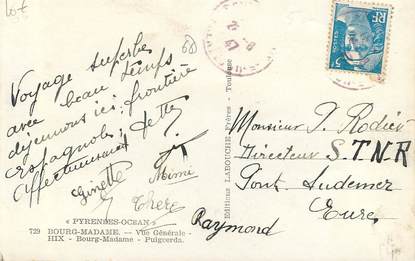 Voyage superbe
avec beau temps
déjeunons ici, frontière
Espagnole,
affectueusement
Ginette Mimi
Raymond
"PYRENEES-OCEAN"
729 BOURG-MADAME. — Vue Générale -
HIX - Bourg-Madame - Puigcerda.
Editions LABOUCHE Frères - Toulouse
Monsieur P. Rodier
Directeur S.T.N.R
Pont Audemer
Eure
RF